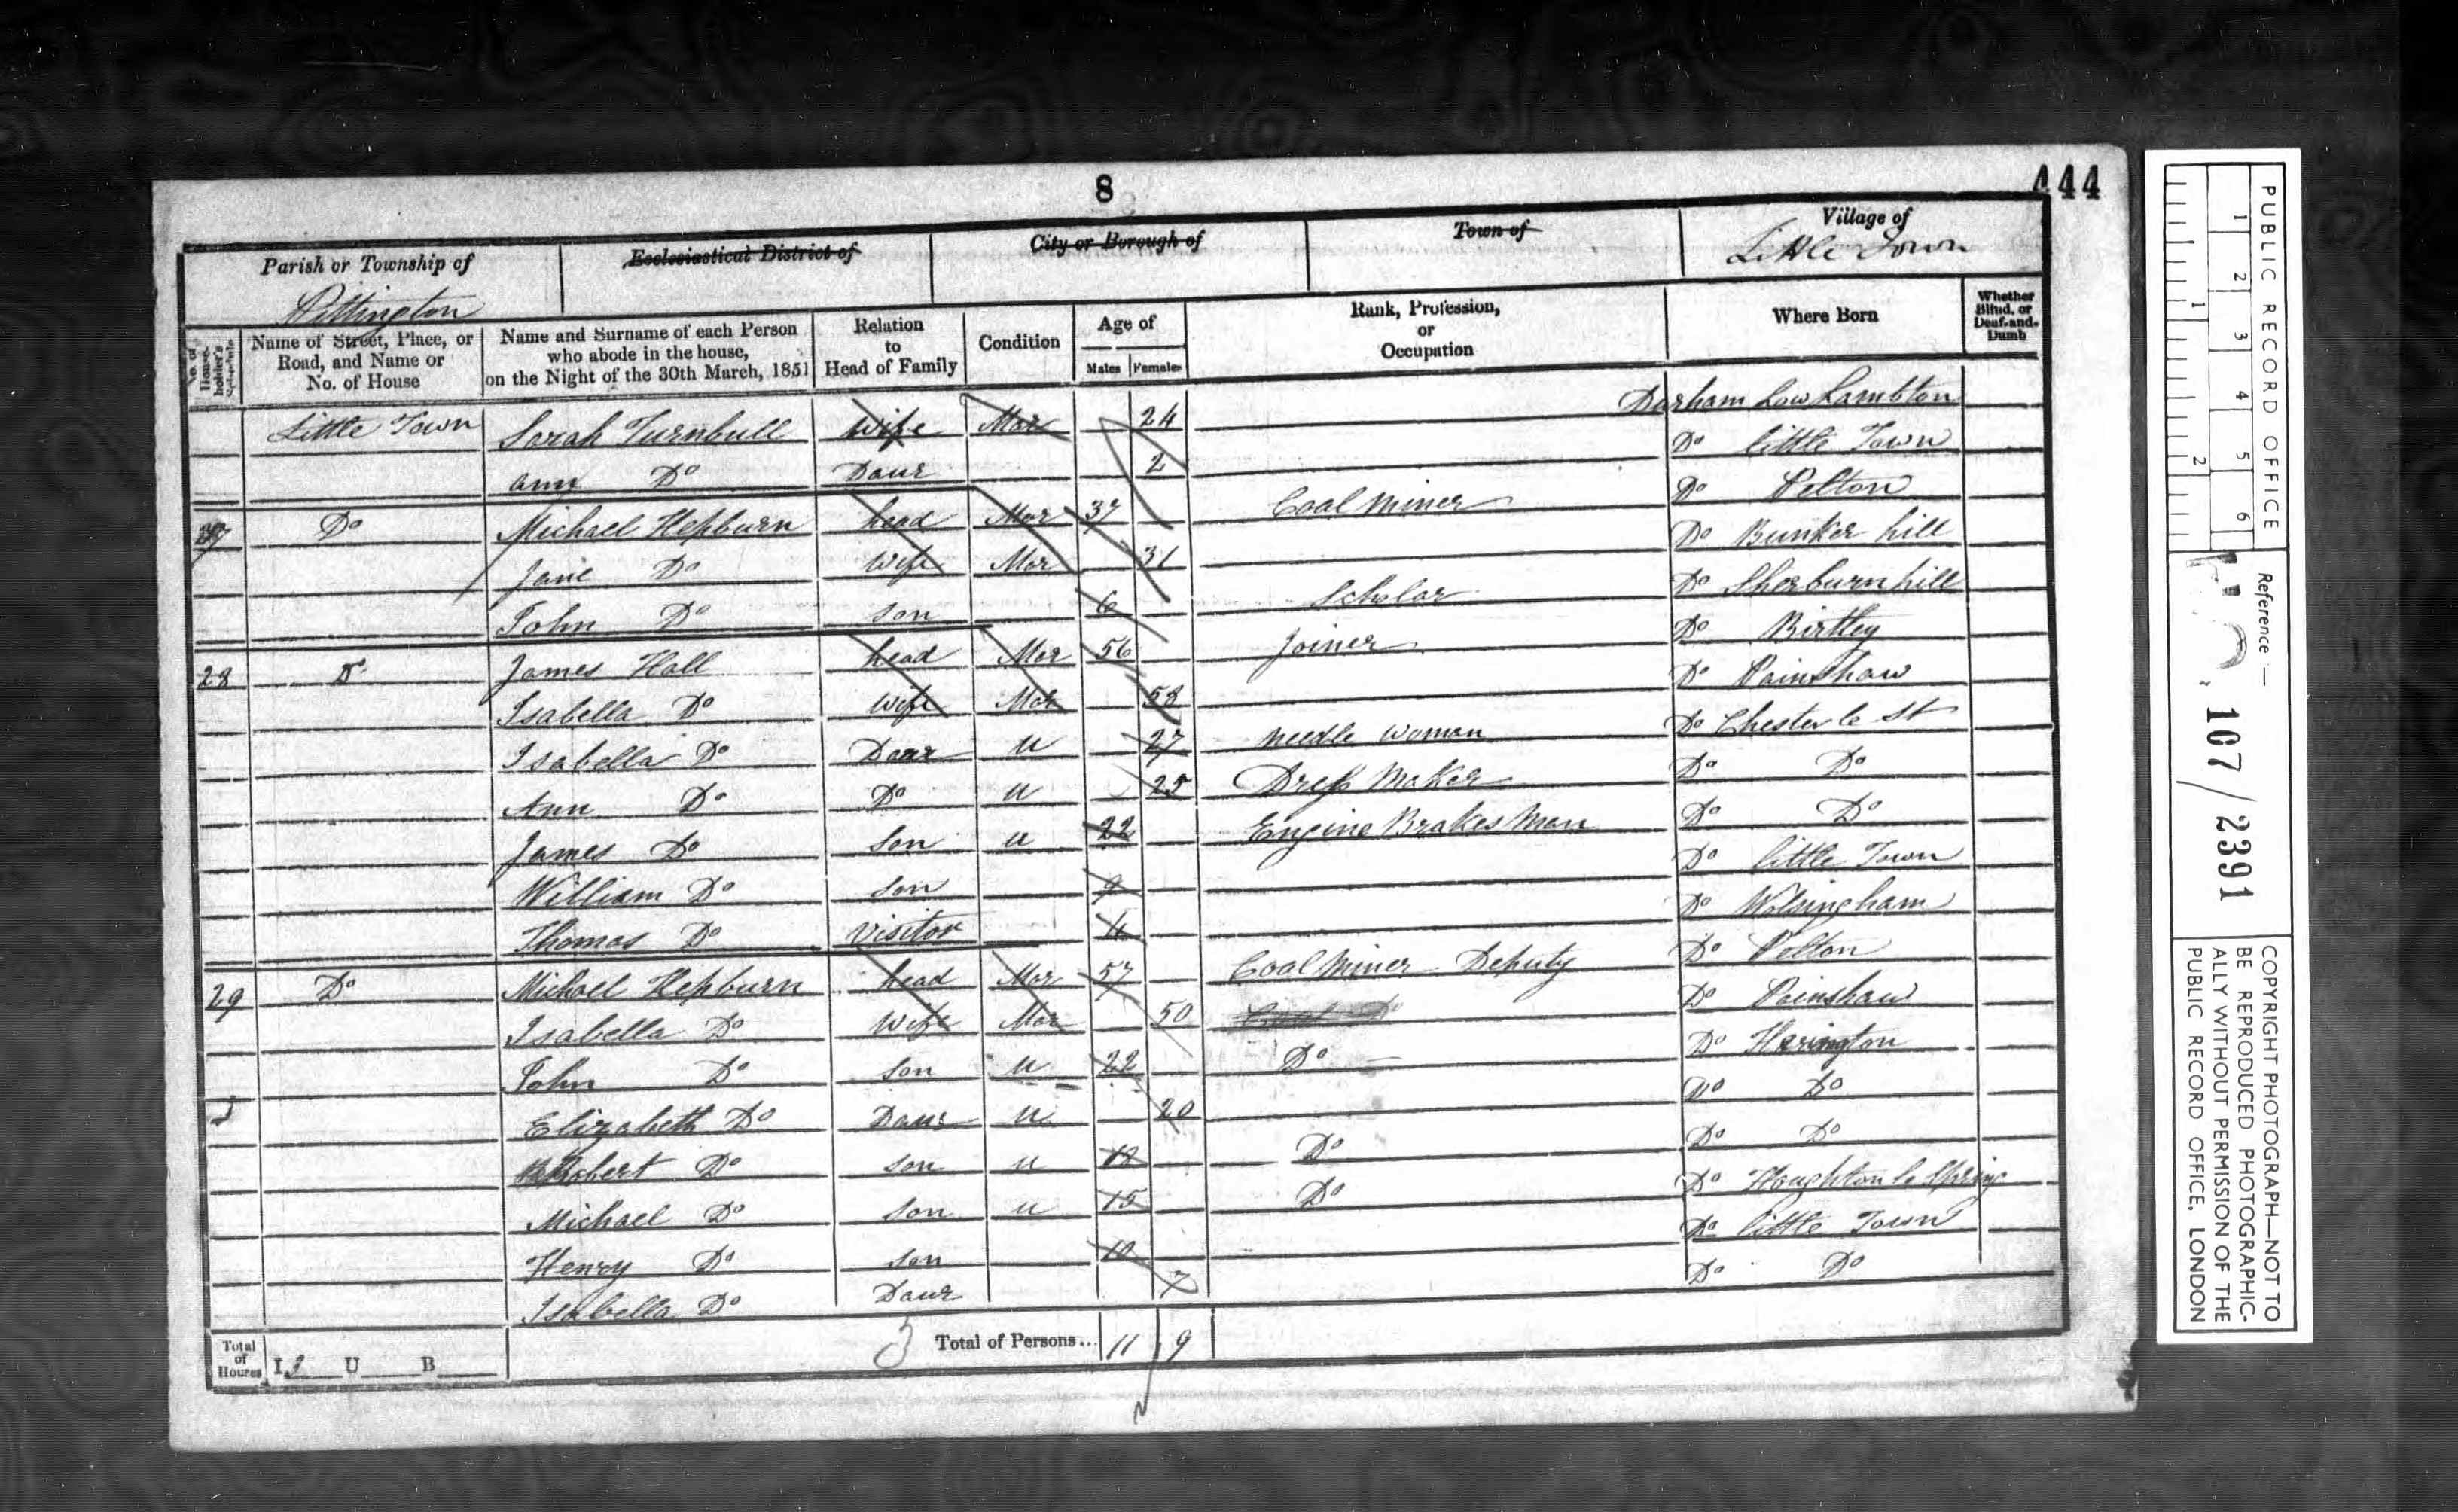 8
444
Parish or Township of
Pittington
Ecclesiastical District of
City or Borough of
Town of
Village of
Little Town
No. of House-holder's Schedule
Name of Street, Place, or Road, and Name or No. of House
Name and Surname of each Person who abode in the house, on the Night of the 30th March, 1851
Relation to Head of Family
Condition
Age of
Males Females
Rank, Profession, or Occupation
Where Born
Whether Blind, or Deaf-and-Dumb
Little Town Sarah Turnbull Wife Mar 24 Durham Low Lambton
Ann Do Daur 2 Do Little Town
27 Do Michael Hepburn head Mar 37 Coal Miner Do Pelton
Jane Do Wife Mar 31 Do Bunker hill
John Do son 6 Scholar Do Sherburn hill
28 Do James Hall head Mar 56 Joiner Do Birtley
Isabella Do Wife Mar 58 Do Painshaw
Isabella Do Daur U 27 Needle Woman Do Chester le St
Ann Do Do U 25 Dress Maker Do Do
James Do Son U 22 Engine Brakes Man Do Do
William Do Son Do Little Town
Thomas Do Visitor Do Wolsingham
29 Do Michael Hepburn head Mar 57 Coal Miner Deputy Do Pelton
Isabella Do Wife Mar 50 Do Painshaw
John Do Son U 22 Do Do Herington
Elizabeth Do Daur U 20 Do Do
Robert Do Son U Do Do Do
Michael Do Son U 15 Do Do Houghton le Spring
Henry Do Son 10 Do Little Town
Isabella Do Daur 7 Do Do
Total of Houses I 3 U B
Total of Persons... 11 9
PUBLIC RECORD OFFICE
1 2 3 4 5 6
1 2
Reference :—
107/2391
COPYRIGHT PHOTOGRAPH—NOT TO
BE REPRODUCED PHOTOGRAPHIC-
ALLY WITHOUT PERMISSION OF THE
PUBLIC RECORD OFFICE, LONDON